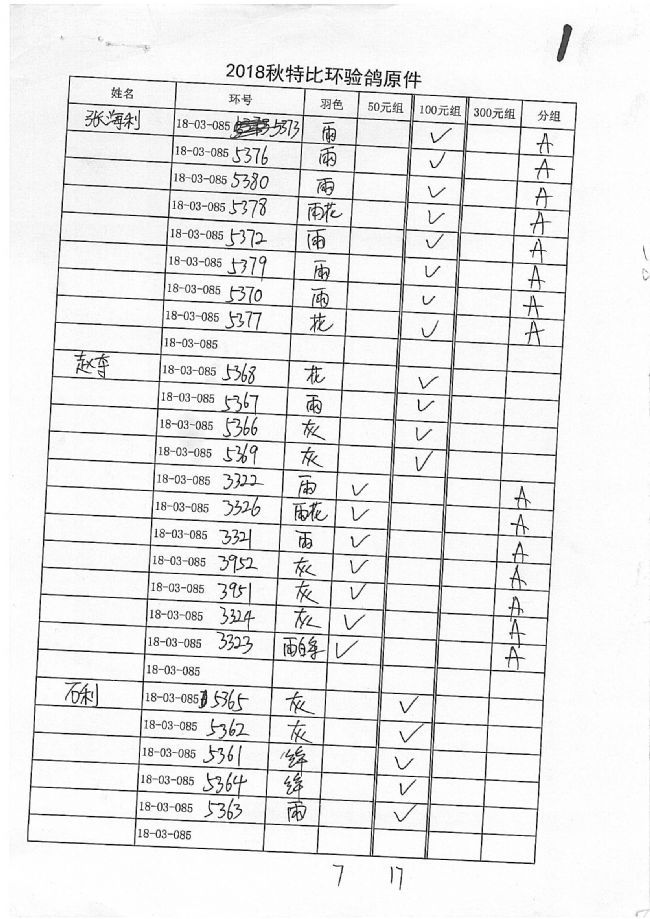 1
2018秋特比环验鸽原件
姓名 环号 羽色 50元组 100元组 300元组 分组
张海利 18-03-085 5373 雨 ✓ A
18-03-085 5376 雨 ✓ A
18-03-085 5380 雨 ✓ A
18-03-085 5378 雨花 ✓ A
18-03-085 5372 雨 ✓ A
18-03-085 5379 雨 ✓ A
18-03-085 5370 雨 ✓ A
18-03-085 5377 花 ✓ A
18-03-085
赵奇 18-03-085 5368 花 ✓
18-03-085 5367 雨 ✓
18-03-085 5366 灰 ✓
18-03-085 5369 灰 ✓
18-03-085 3322 雨 ✓ A
18-03-085 3326 雨花 ✓ A
18-03-085 3321 雨 ✓ A
18-03-085 3952 灰 ✓ A
18-03-085 3951 灰 ✓ A
18-03-085 3324 灰 ✓ A
18-03-085 3323 雨白条 ✓ A
18-03-085
石利 18-03-085 5365 灰 ✓
18-03-085 5362 灰 ✓
18-03-085 5361 绛 ✓
18-03-085 5364 绛 ✓
18-03-085 5363 雨 ✓
18-03-085
7 17